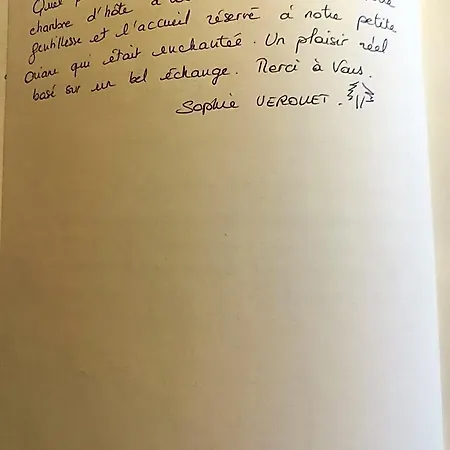 Quel
chambre d'hôte à
gentillesse et l'accueil réservé à notre petite
Oriane qui était enchantée. Un plaisir réel
basé sur un bel échange. Merci à Vous.
Sophie VEROUET.